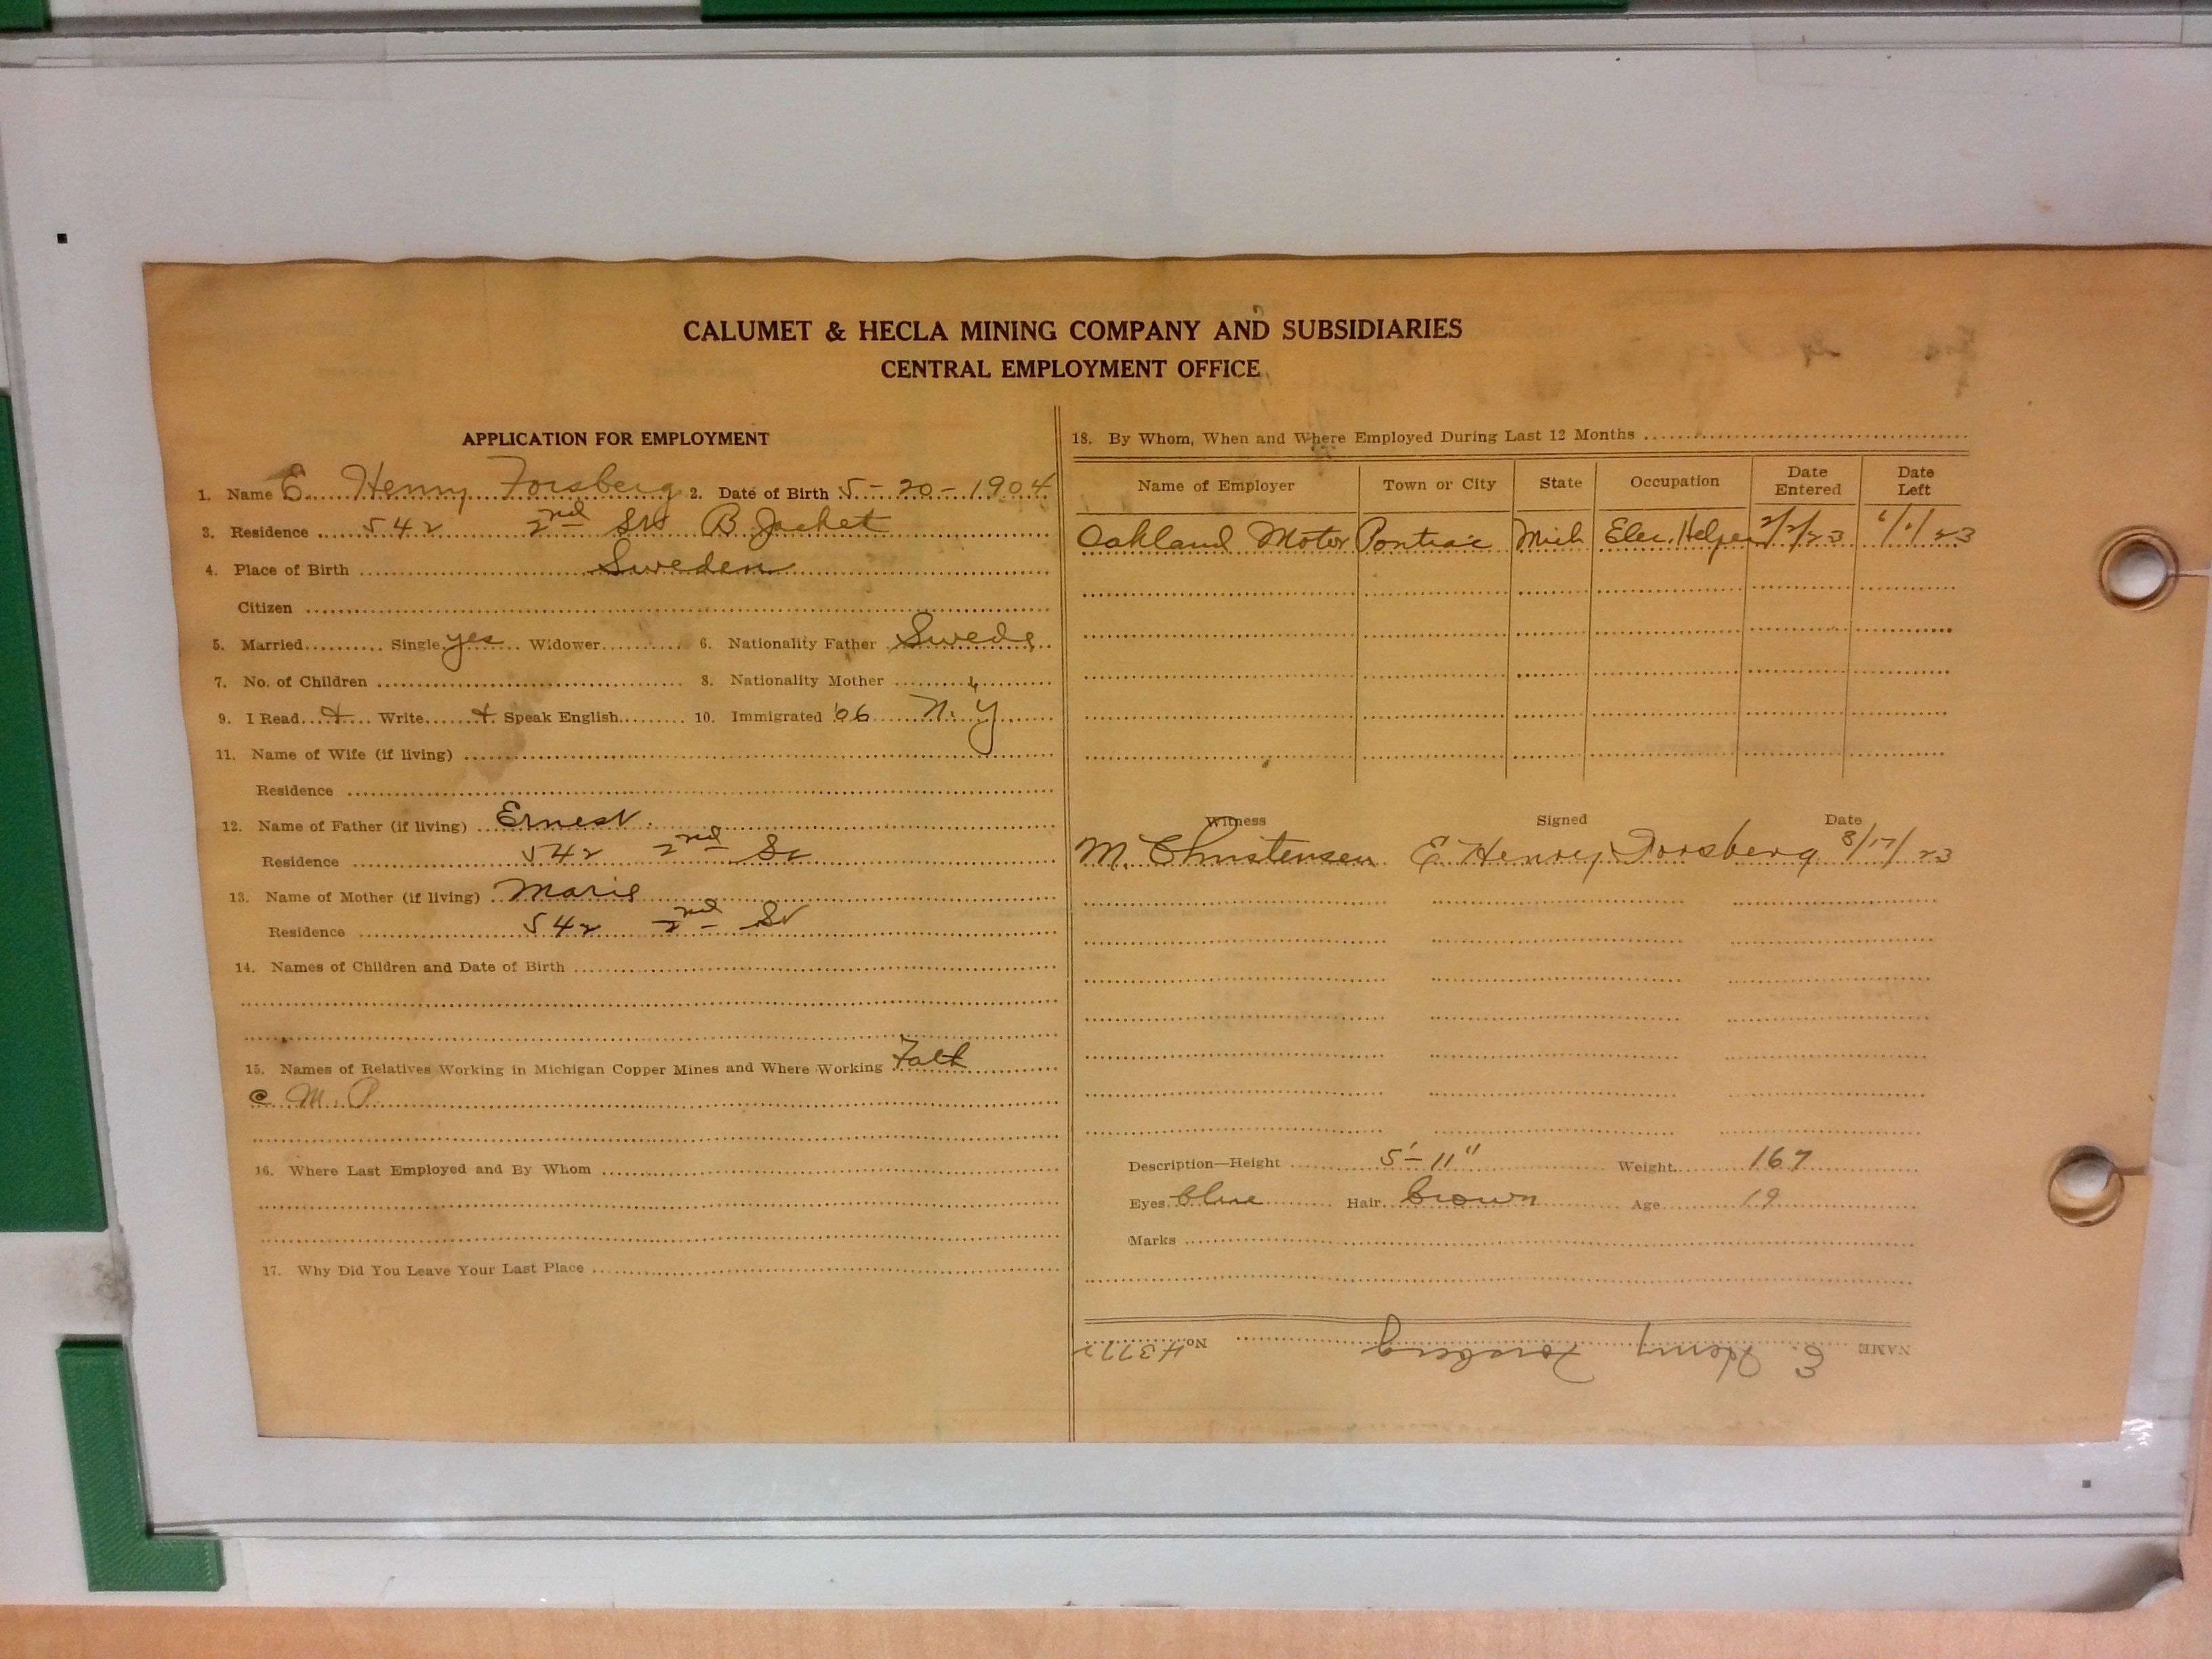 CALUMET & HECLA MINING COMPANY AND SUBSIDIARIES
CENTRAL EMPLOYMENT OFFICE
APPLICATION FOR EMPLOYMENT
1. Name E. Henry Forsberg 2. Date of Birth 5-20-1904
3. Residence 542 2nd St B Jacket
4. Place of Birth Sweden
Citizen
5. Married Single yes Widower 6. Nationality Father Swede
7. No. of Children 8. Nationality Mother "
9. I Read + Write + Speak English 10. Immigrated '06 N.Y
11. Name of Wife (if living)
Residence
12. Name of Father (if living) Ernest
Residence 542 2nd St
13. Name of Mother (if living) Marie
Residence 542 2nd St
14. Names of Children and Date of Birth
15. Names of Relatives Working in Michigan Copper Mines and Where Working Fath
@ M. P.
16. Where Last Employed and By Whom
17. Why Did You Leave Your Last Place
18. By Whom, When and Where Employed During Last 12 Months
Name of Employer Town or City State Occupation Date Entered Date Left
Oakland Motor Pontiac Mich Elec. Helper 2/2/23 6/1/23
Witness Signed Date
M. Christensen E Henry Forsberg 8/17/23
Description—Height 5'-11" Weight 167
Eyes blue Hair brown Age 19
Marks
NAME E. Henry Forsberg No.